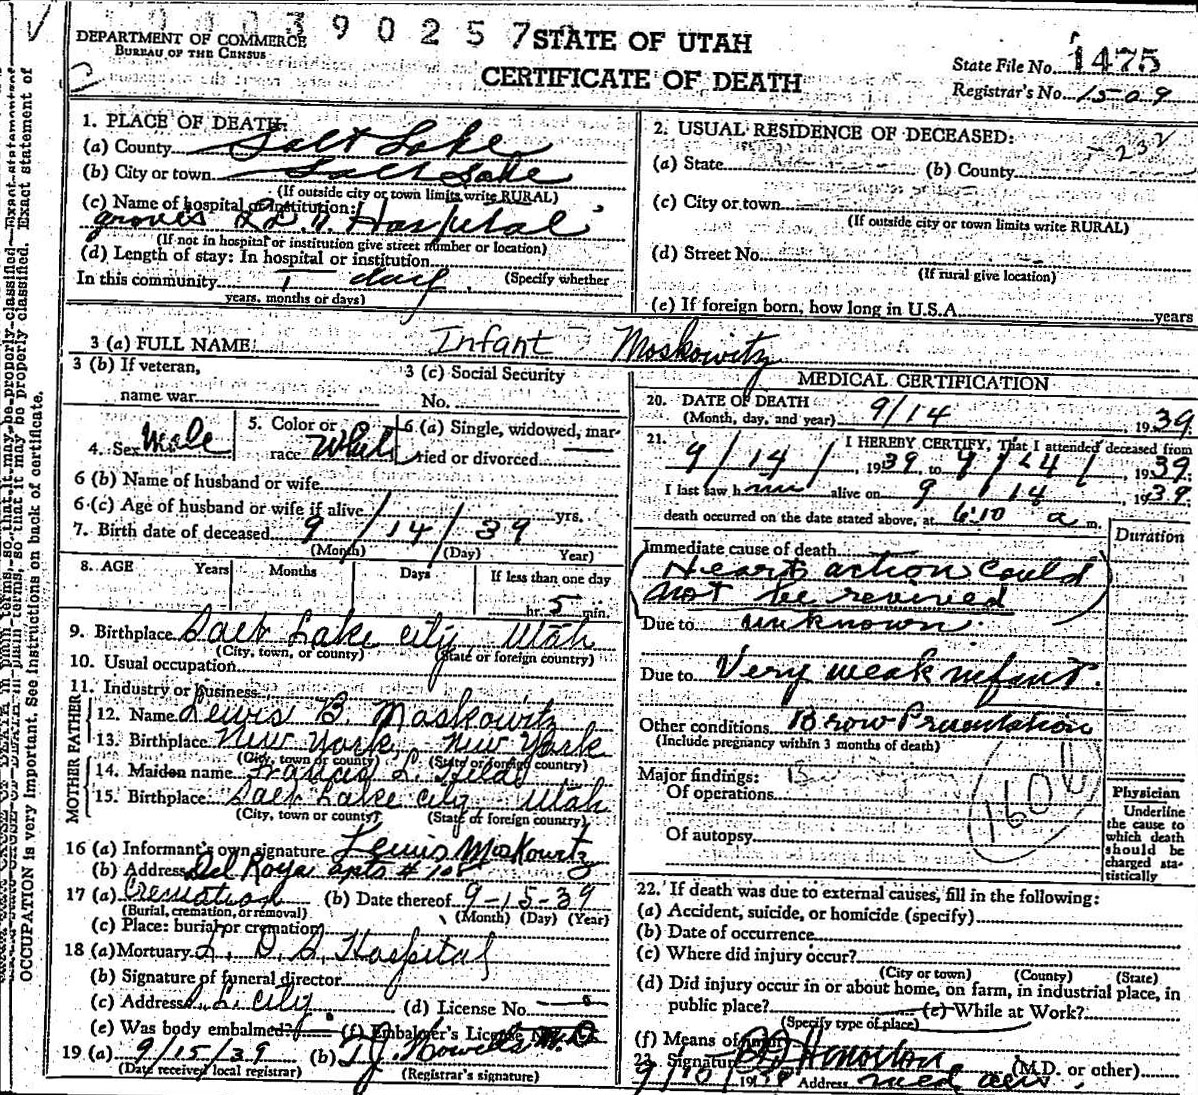 00390257
DEPARTMENT OF COMMERCE
BUREAU OF THE CENSUS
STATE OF UTAH
CERTIFICATE OF DEATH
State File No. 1475
Registrar's No. 1509
OCCUPATION is very important. See instructions on back of certificate.
1. PLACE OF DEATH:
(a) County Salt Lake
(b) City or town Salt Lake
(If outside city or town limits write RURAL)
(c) Name of hospital or institution:
groves L.D.S. Hospital
(If not in hospital or institution give street number or location)
(d) Length of stay: In hospital or institution
(Specify whether
In this community 1 day
years, months or days)
2. USUAL RESIDENCE OF DECEASED:
232
(a) State (b) County
(c) City or town
(If outside city or town limits write RURAL)
(d) Street No.
(If rural give location)
(e) If foreign born, how long in U.S.A. years
3 (a) FULL NAME: Infant Moskowitz
3 (b) If veteran,
name war
3 (c) Social Security
No.
4. Sex Male
5. Color or
race White
6 (a) Single, widowed, mar-
ried or divorced
6 (b) Name of husband or wife
6 (c) Age of husband or wife if alive yrs.
7. Birth date of deceased 9 / 14 / 39
(Month) (Day) Year)
8. AGE Years Months Days If less than one day
hr. 5 min.
9. Birthplace Salt Lake city, Utah
(City, town, or county) (State or foreign country)
10. Usual occupation
11. Industry or business
FATHER
12. Name Lewis B. Moskowitz
13. Birthplace New York, New York
(City, town or county) (State or foreign country)
MOTHER
14. Maiden name Francis L.
15. Birthplace Salt Lake city, Utah
(City, town or county) (State or foreign country)
16 (a) Informant's own signature Lewis Moskowitz
(b) Address Del Roya apts # 108
17 (a) Cremation (b) Date thereof 9-15-39
(Burial, cremation, or removal) (Month) (Day) (Year)
(c) Place: burial or cremation
18 (a) Mortuary L. D. S. Hospital
(b) Signature of funeral director
(c) Address S.L. City. (d) License No.
(e) Was body embalmed? (f) Embalmer's License No.
19 (a) 9/15/39 (b) T.J. Howells M.D
(Date received local registrar) (Registrar's signature)
MEDICAL CERTIFICATION
20. DATE OF DEATH
(Month, day, and year) 9/14, 1939
21. I HEREBY CERTIFY, That I attended deceased from
9 / 14 /, 1939 to 9 / 14 /, 1939
I last saw him alive on 9 / 14, 1939
death occurred on the date stated above, at 6:10 a m.
Duration
Immediate cause of death
(Heart action could
not be revived)
Due to unknown
Due to Very weak infant.
Other conditions Brow Presentation
(Include pregnancy within 3 months of death)
Major findings:
Of operations
Of autopsy
160
Physician
Underline
the cause to
which death
should be
charged sta-
tistically
22. If death was due to external causes, fill in the following:
(a) Accident, suicide, or homicide (specify)
(b) Date of occurrence
(c) Where did injury occur?
(City or town) (County) (State)
(d) Did injury occur in or about home, on farm, in industrial place, in
public place? (e) While at Work?
(Specify type of place)
(f) Means of injury
23. Signature (M.D. or other)
Address